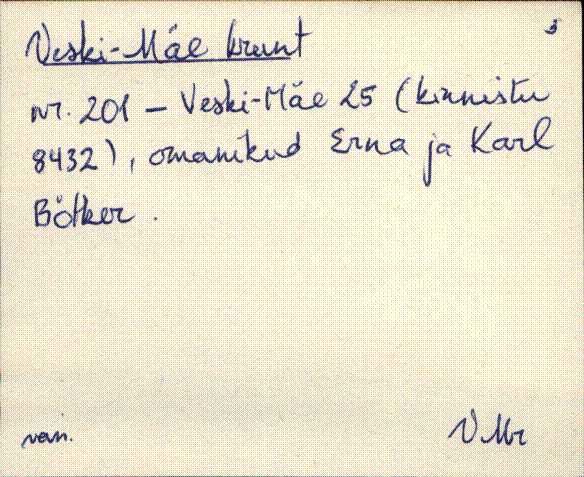 3
Veski-Mäe krunt
nr. 201 – Veski-Mäe 25 (kinnistu
8432), omanikud Erna ja Karl
Bötker.
van. V Mr